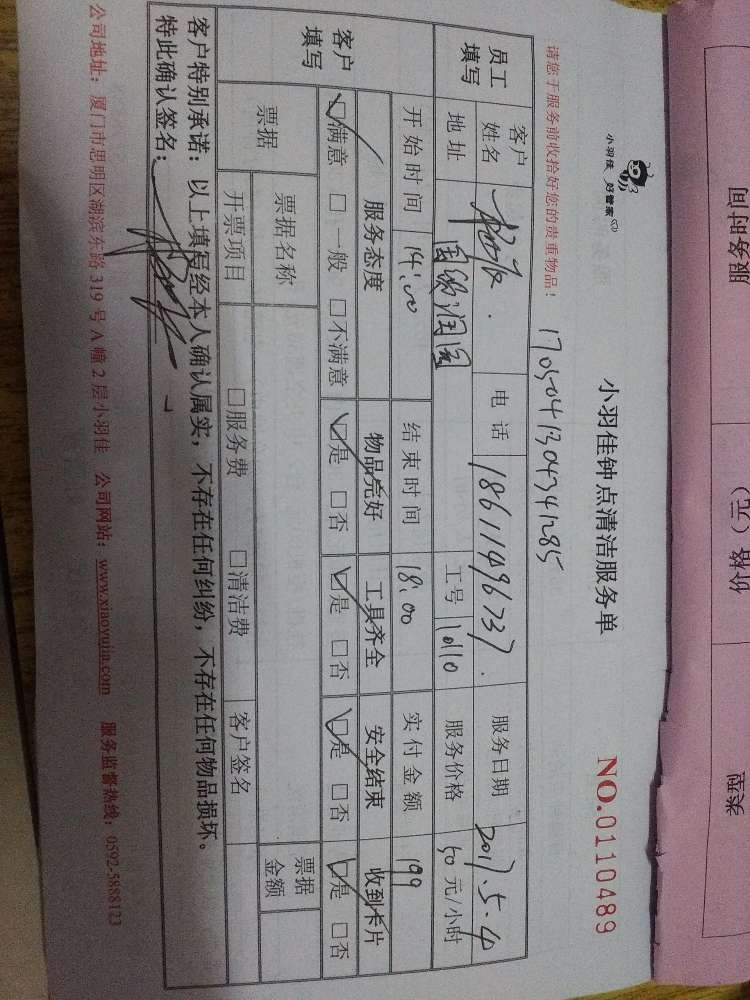 小羽佳 好管家
小羽佳钟点清洁服务单
NO.0110489
1705041304341285
请您于服务前收拾好您的贵重物品！
员工填写
客户姓名
电话 18611496737
服务日期 2017.5.4
地址 国贸润园
工号 10110
服务价格 50 元/小时
客户填写
开始时间 14:00
结束时间 18:00
实付金额 199
服务态度 物品完好 工具齐全 安全结束 收到卡片
☑满意 □一般 □不满意 ☑是 □否 ☑是 □否 ☑是 □否 ☑是 □否
票据
票据名称
票据金额
开票项目 □服务费 □清洁费 客户签名
客户特别承诺：以上填写经本人确认属实，不存在任何纠纷，不存在任何物品损坏。
特此确认签名：
公司地址：厦门市思明区湖滨东路 319 号 A 幢 2 层小羽佳 公司网站：www.xiaoyujia.com 服务监督热线：0592-5888123
服务时间
价格（元）
类型